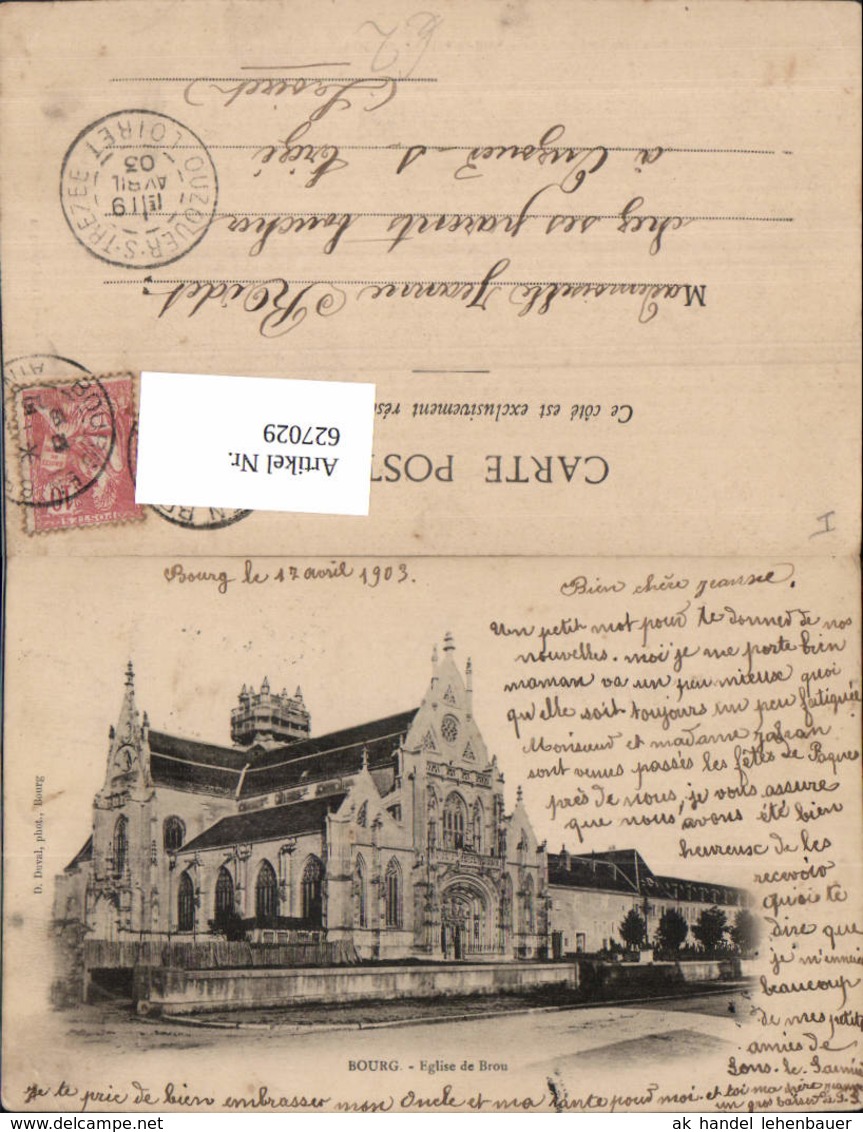 CARTE POST
Ce côté est exclusivement rése
Artikel Nr.
627029
Mademoiselle Jeanne
chez ses parents boucher
à Ouzouer s trézé
(Loiret)
OUZOUER-S-TREZEE
LOIRET
19
AVRIL
03
10
Bourg le 17 avril 1903.
Bien chère Jeanne.
Un petit mot pour te donner de nos
nouvelles. moi je me porte bien
maman va un peu mieux quoi
qu'elle soit toujours un peu fatiguée
Monsieur et madame
sont venus passés les fêtes de Paques
près de nous, je vous assure
que nous avons été bien
heureuse de les
recevoir
quoi te
dire que
je m'ennuie
beaucoup
de mes petite
amies de
Lons-le-Saunier
Je te prie de bien embrasser mon Oncle et ma tante pour moi. et toi ma chère Jeanne
un gros baiser de
D. Duval, phot., Bourg
BOURG. - Eglise de Brou
ak handel lehenbauer